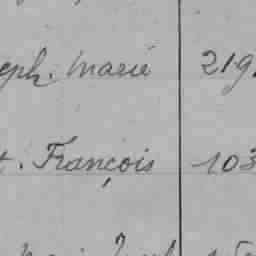 eph. Marie 219
t. François 103